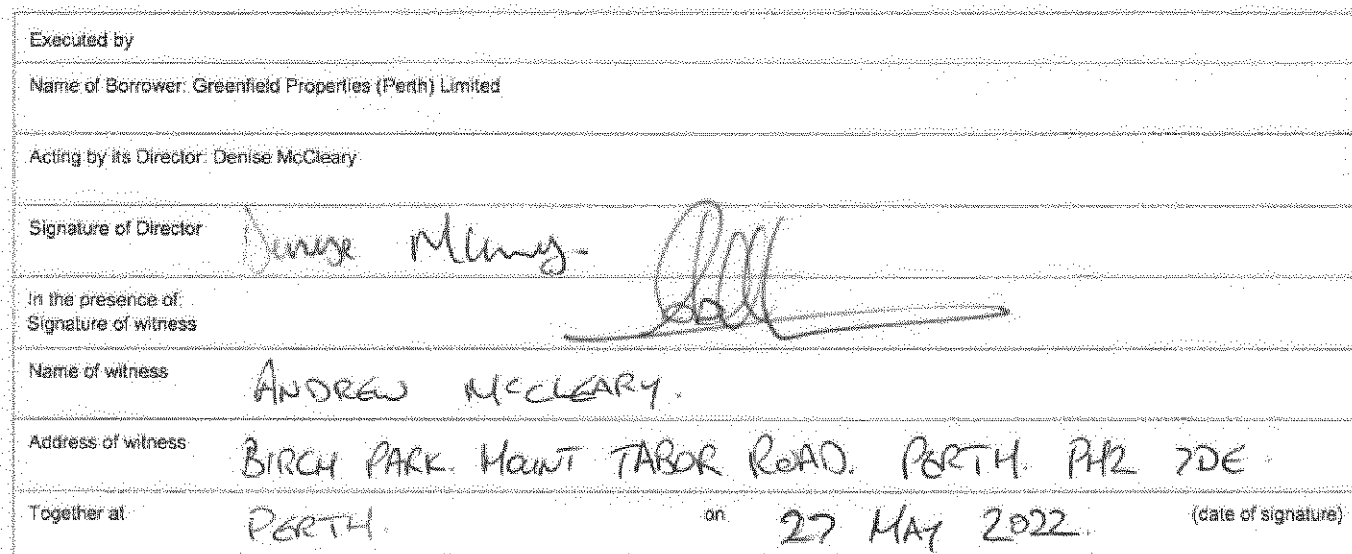 Executed by
Name of Borrower: Greenfield Properties (Perth) Limited
Acting by its Director: Denise McCleary
Signature of Director Denise
In the presence of:
Signature of witness
Name of witness ANDREW MCCLEARY.
Address of witness BIRCH PARK. MOUNT TABOR ROAD. PERTH. PH2 7DE
Together at PERTH. on 27 MAY 2022. (date of signature)